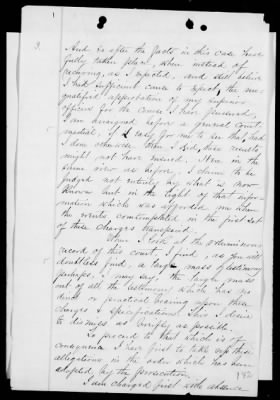 1
3.
And so after the facts in this case have
fully taken place, when instead of
receiving, as I expected, and still believe
I had sufficient cause to expect, the un-
qualified approbation of my superior
officers for the course I have pursued,
I am arraigned before a general court
martial. It is easy for me to see that, had
I done otherwise than I did, these results
might not have ensued. Here in the
same view as before, I claim to be
judged not entirely by what is now
known but in the light of that infor-
mation which was afforded me when
the events contemplated in the first set
of these charges transpired.
When I look at the voluminous
record of this court, I find, as you will
doubtless find, a huge mass of testimony
perhaps, I may say, the larger mass
out of all the testimony which has no
direct or practical bearing upon these
charges & specifications. This I desire
to dismiss as briefly as possible.
To proceed to that which is of
consequence I have first to take up those
allegations in the order which has been
adopted by the prosecution.
I am charged first with absence